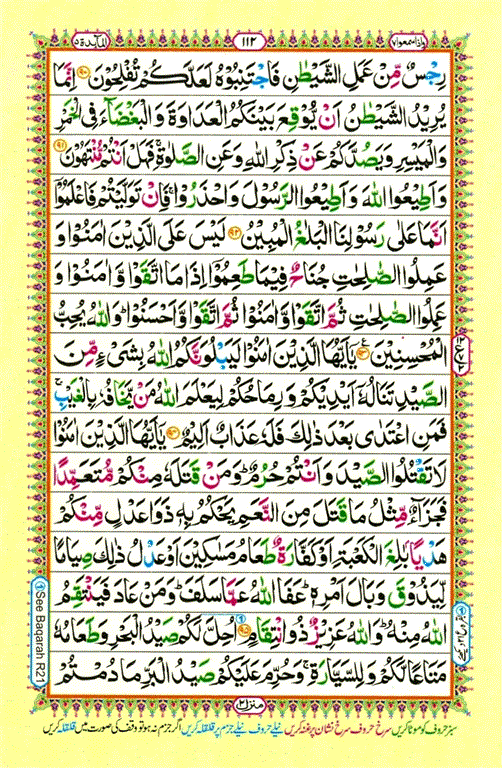 واذاسمعوا٧
١١٢
المآىدة٥
رِجۡسٌ مِّنۡ عَمَلِ الشَّيۡطٰنِ فَاجۡتَنِبُوۡهُ لَعَلَّكُمۡ تُفۡلِحُوۡنَ ﴿۹۰﴾ اِنَّمَا
يُرِيۡدُ الشَّيۡطٰنُ اَنۡ يُّوۡقِعَ بَيۡنَكُمُ الۡعَدَاوَةَ وَالۡبَغۡضَآءَ فِى الۡخَمۡرِ
وَالۡمَيۡسِرِ وَيَصُدَّكُمۡ عَنۡ ذِكۡرِ اللّٰهِ وَعَنِ الصَّلٰوةِ ۚ فَهَلۡ اَنۡتُمۡ مُّنۡتَهُوۡنَ ﴿۹۱﴾
وَاَطِيۡعُوا اللّٰهَ وَاَطِيۡعُوا الرَّسُوۡلَ وَاحۡذَرُوۡا ۚ فَاِنۡ تَوَلَّيۡتُمۡ فَاعۡلَمُوۡۤا
اَنَّمَا عَلٰى رَسُوۡلِنَا الۡبَلٰغُ الۡمُبِيۡنُ ﴿۹۲﴾ لَيۡسَ عَلَى الَّذِيۡنَ اٰمَنُوۡا وَ
عَمِلُوا الصّٰلِحٰتِ جُنَاحٌ فِيۡمَا طَعِمُوۡۤا اِذَا مَا اتَّقَوا وَّاٰمَنُوۡا وَ
عَمِلُوا الصّٰلِحٰتِ ثُمَّ اتَّقَوا وَّاٰمَنُوۡا ثُمَّ اتَّقَوا وَّاَحۡسَنُوۡا ؕ وَاللّٰهُ يُحِبُّ
الۡمُحۡسِنِيۡنَ ﴿۹۳﴾ يٰۤاَيُّهَا الَّذِيۡنَ اٰمَنُوۡا لَيَبۡلُوَنَّكُمُ اللّٰهُ بِشَىۡءٍ مِّنَ
الصَّيۡدِ تَنَالُهٗۤ اَيۡدِيۡكُمۡ وَرِمَاحُكُمۡ لِيَعۡلَمَ اللّٰهُ مَنۡ يَّخَافُهٗ بِالۡغَيۡبِ ۚ
فَمَنِ اعۡتَدٰى بَعۡدَ ذٰلِكَ فَلَهٗ عَذَابٌ اَلِيۡمٌ ﴿۹۴﴾ يٰۤاَيُّهَا الَّذِيۡنَ اٰمَنُوۡا
لَا تَقۡتُلُوا الصَّيۡدَ وَاَنۡتُمۡ حُرُمٌ ؕ وَمَنۡ قَتَلَهٗ مِنۡكُمۡ مُّتَعَمِّدًا
فَجَزَآءٌ مِّثۡلُ مَا قَتَلَ مِنَ النَّعَمِ يَحۡكُمُ بِهٖ ذَوَا عَدۡلٍ مِّنۡكُمۡ
هَدۡيًۢا بٰلِغَ الۡكَعۡبَةِ اَوۡ كَفَّارَةٌ طَعَامُ مَسٰكِيۡنَ اَوۡ عَدۡلُ ذٰلِكَ صِيَامًا
لِّيَذُوۡقَ وَبَالَ اَمۡرِهٖ ؕ عَفَا اللّٰهُ عَمَّا سَلَفَ ؕ وَمَنۡ عَادَ فَيَنۡتَقِمُ
اللّٰهُ مِنۡهُ ؕ وَاللّٰهُ عَزِيۡزٌ ذُو انۡتِقَامٍ ﴿۹۵﴾ اُحِلَّ لَكُمۡ صَيۡدُ الۡبَحۡرِ وَطَعَامُهٗ
مَتَاعًا لَّكُمۡ وَلِلسَّيَّارَةِ ۚ وَحُرِّمَ عَلَيۡكُمۡ صَيۡدُ الۡبَرِّ مَا دُمۡتُمۡ
See Baqarah R21
منزل٢
سبز حروف کو موٹا کریں سرخ حروف سرخ نشان پر غنہ کریں نیلے حروف نیلے جزم پر قلقلہ کریں اگر جزم نہ ہو تو وقف کی صورت میں قلقلہ کریں